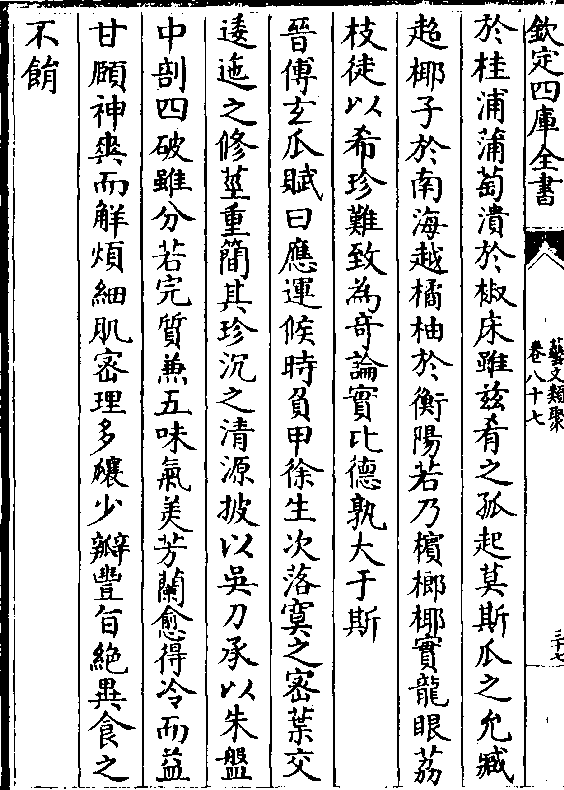 欽定四庫全書
藝文類聚
卷八十七
三十七
於桂浦蒲萄潰於椒床雖兹肴之孤起莫斯瓜之允臧
超椰子於南海越橘柚於衡陽若乃檳榔椰實龍眼荔
枝徒以希珍難致為奇論實比德孰大于斯
晉傅玄瓜賦曰應運候時負甲徐生次落寞之宻葉交
逶迤之修莖重簡其珍沉之清源披以吳刀承以朱盤
中剖四破雖分若完質兼五味氣美芳蘭愈得冷而益
甘頤神爽而解煩細肌宻理多瓤少瓣豐㫖絶異食之
不䬼